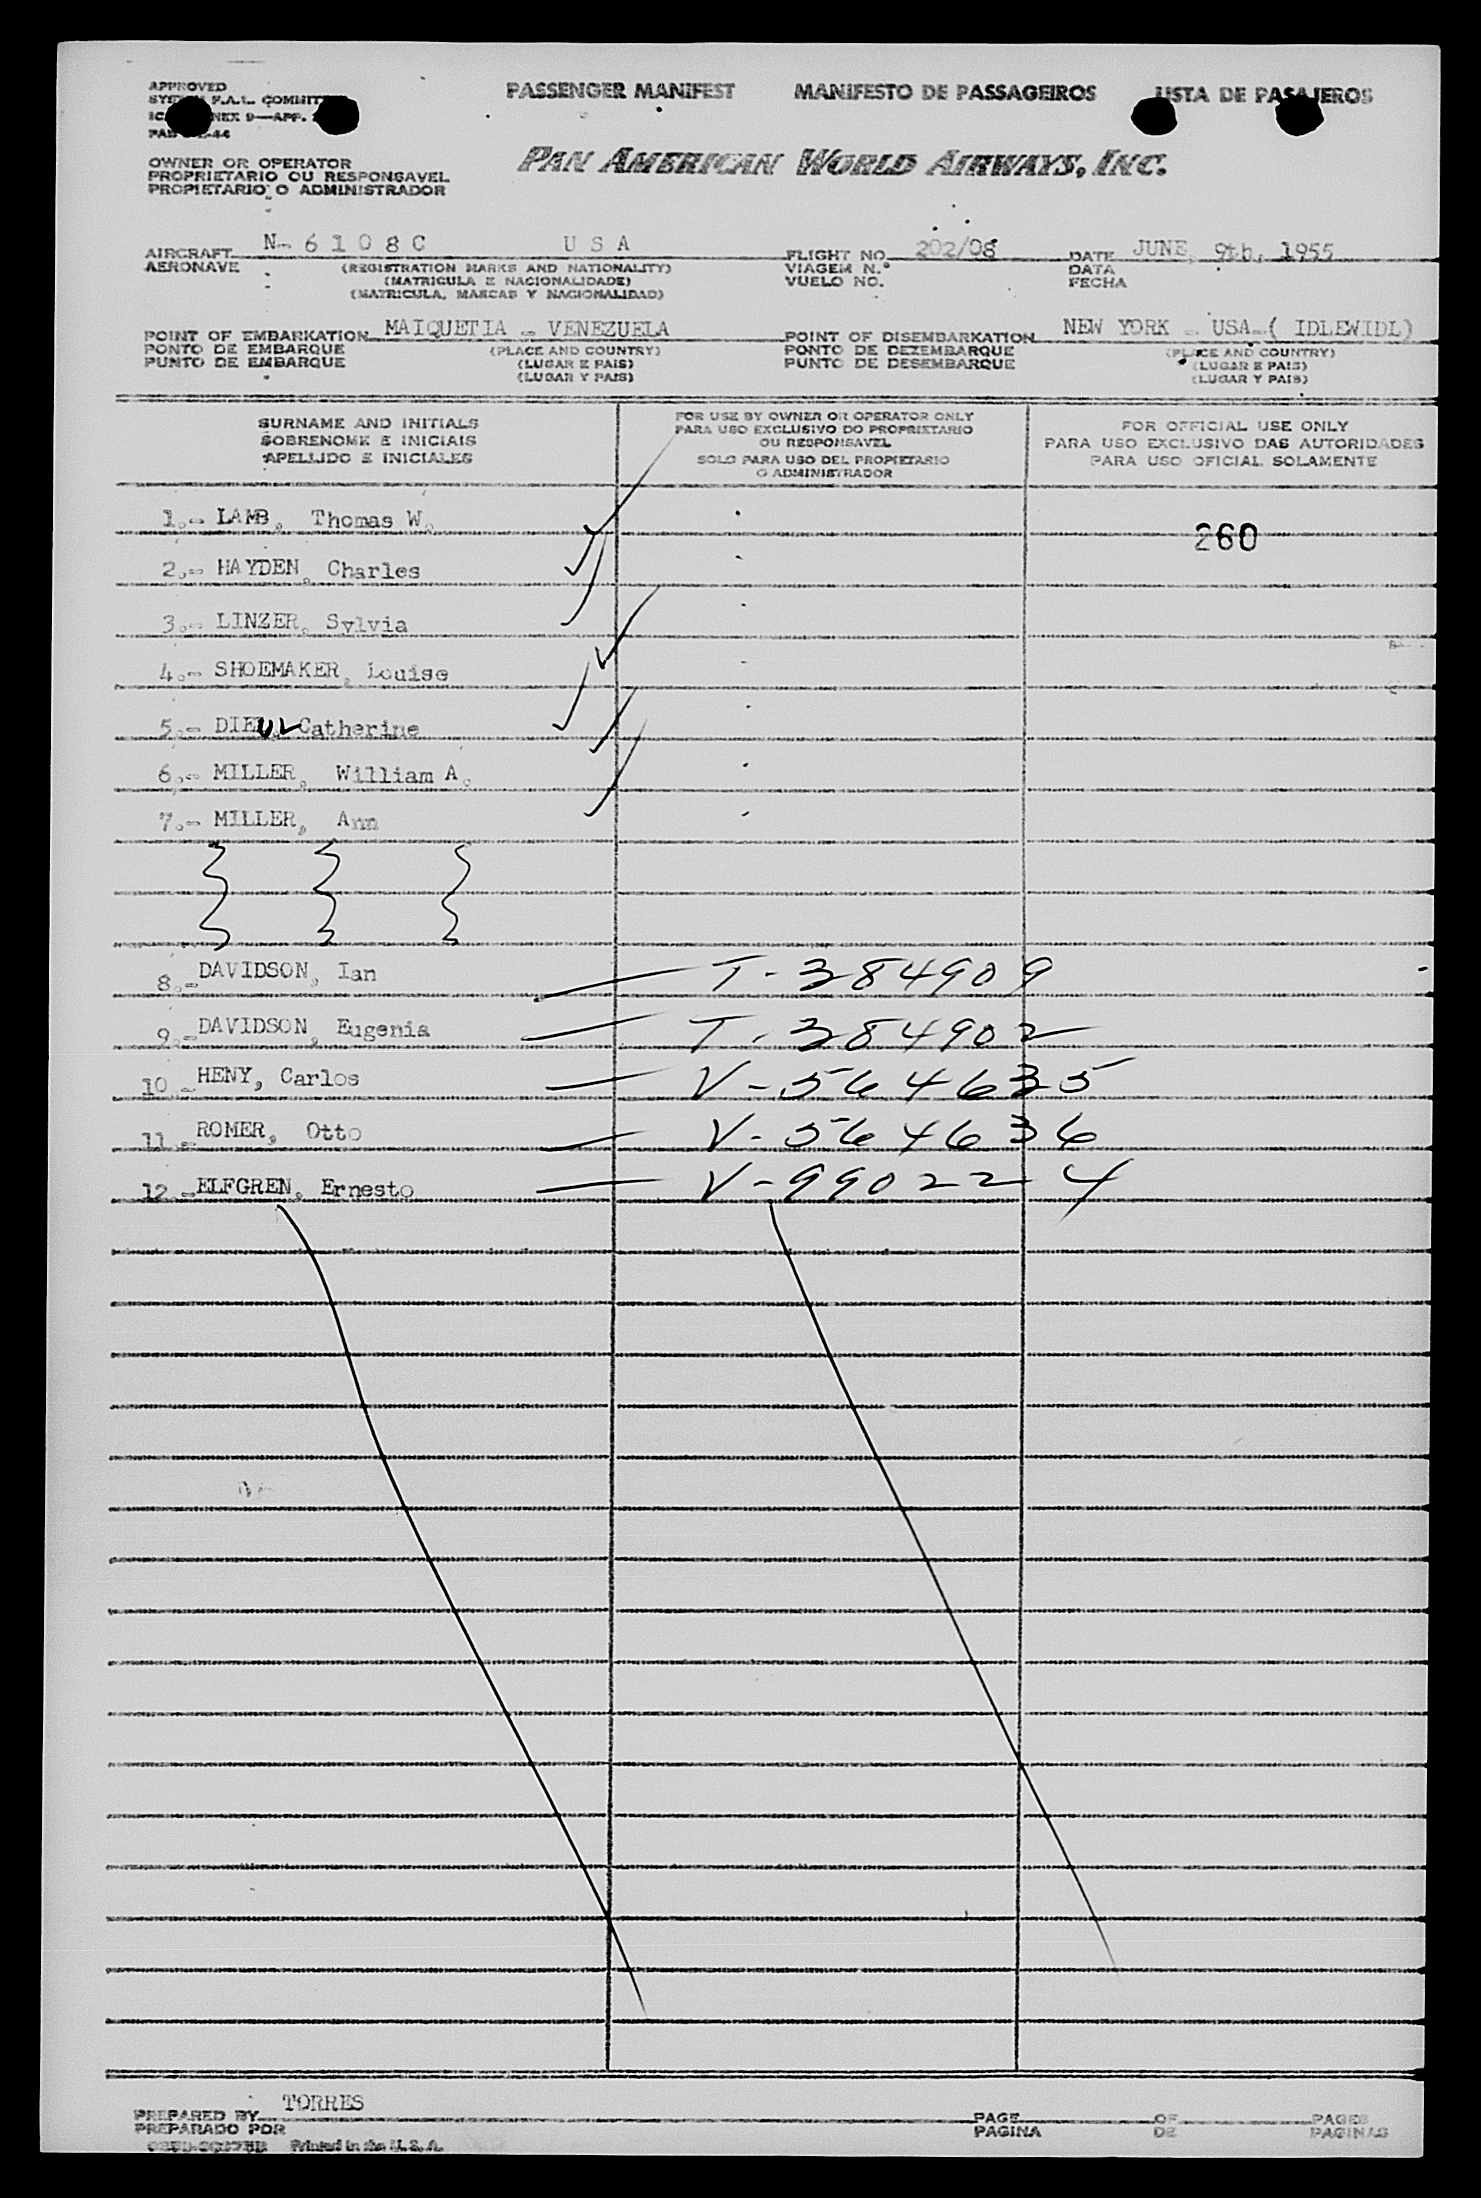 PASSENGER MANIFEST MANIFESTO DE PASSAGEIROS LISTA DE PASAJEROS
APPROVED
OWNER OR OPERATOR
PROPRIETARIO OU RESPONSAVEL
PROPIETARIO O ADMINISTRADOR
PAN AMERICAN WORLD AIRWAYS, INC.
AIRCRAFT N- 6 1 0 8 C U S A FLIGHT NO. 202/08 DATE JUNE, 9th, 1955
AERONAVE (REGISTRATION MARKS AND NATIONALITY) VIAGEM N.º DATA
(MATRICULA E NACIONALIDADE) VUELO NO. FECHA
(MATRICULA, MARCAS Y NACIONALIDAD)
POINT OF EMBARKATION MAIQUETIA - VENEZUELA POINT OF DISEMBARKATION NEW YORK - USA-( IDLEWIDL)
PONTO DE EMBARQUE (PLACE AND COUNTRY) PONTO DE DEZEMBARQUE (PLACE AND COUNTRY)
PUNTO DE EMBARQUE (LUGAR E PAIS) PUNTO DE DESEMBARQUE (LUGAR E PAIS)
(LUGAR Y PAIS) (LUGAR Y PAIS)
SURNAME AND INITIALS
SOBRENOME E INICIAIS
APELLIDO E INICIALES
FOR USE BY OWNER OR OPERATOR ONLY
PARA USO EXCLUSIVO DO PROPRIETARIO
OU RESPONSAVEL
SOLO PARA USO DEL PROPIETARIO
O ADMINISTRADOR
FOR OFFICIAL USE ONLY
PARA USO EXCLUSIVO DAS AUTORIDADES
PARA USO OFICIAL SOLAMENTE
1.- LAMB, Thomas W.
260
2.- HAYDEN, Charles
3.- LINZER, Sylvia
4.- SHOEMAKER, Louise
5.- Catherine
6.- MILLER, William A.
7.- MILLER, Ann
8.- DAVIDSON, Ian T-384909
9.- DAVIDSON, Eugenia T-384902
10.- HENY, Carlos V-564635
11.- ROMER, Otto V-564636
12.- ELFGREN, Ernesto V-990224
PREPARED BY TORRES PAGE OF PAGES
PREPARADO POR PAGINA DE PAGINAS
Printed in the U.S.A.